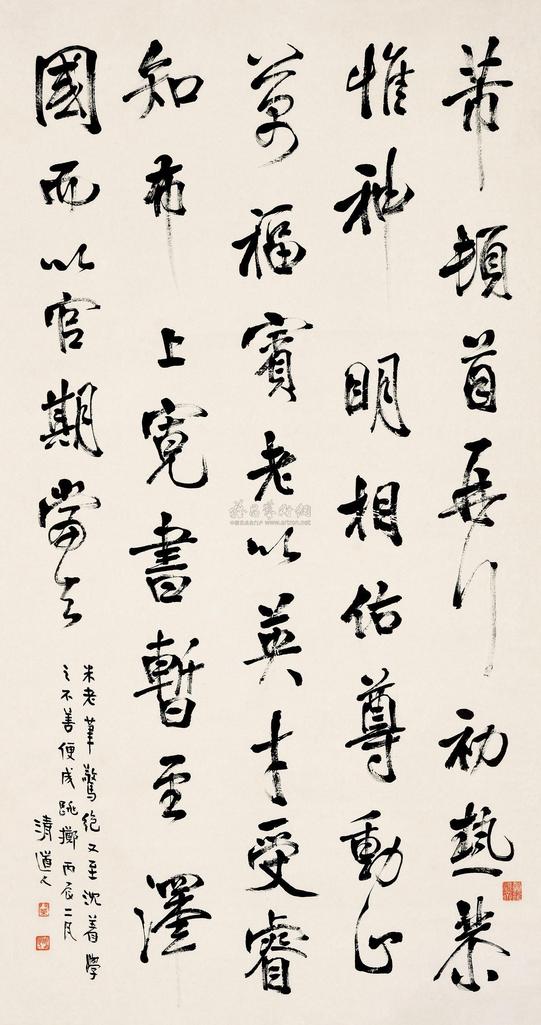 芾頓首再拜初熱恭
惟神明相佑尊動止
萬福賓老以英才受睿
知布上寬書暫至澤
國而以官期當去
米老筆驚絕又至沈着學
之不善便成跳擲丙辰二月
清道人
雅昌藝術網
www.artron.net